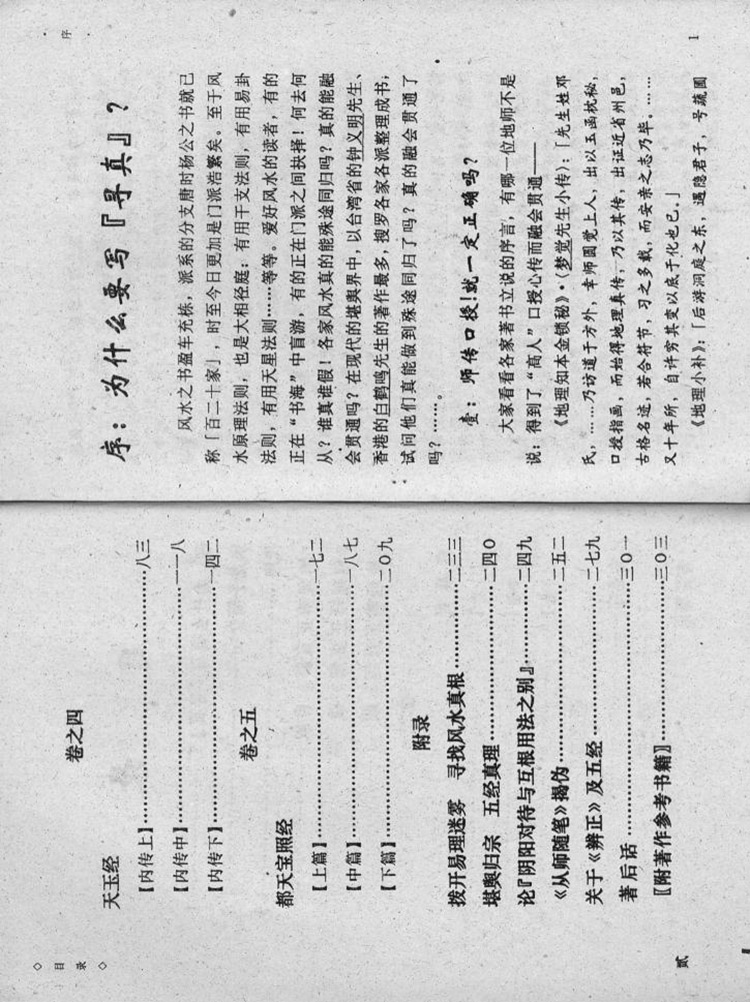 ◇ 目 录 ◇
卷之四
天玉经
【内传上】……………………八三
【内传中】……………………一一八
【内传下】……………………一四二
卷之五
都天宝照经
【上篇】……………………一七二
【中篇】……………………一八七
【下篇】……………………二〇九
附录
拨开易理迷雾 寻找风水真根……………二三三
堪舆归宗 五经真理……………二四〇
论『阴阳对待与互根用法之别』……………二四九
《从师随笔》揭伪……………二五二
关于《辨正》及五经……………二七九
著后话……………三〇一
〖附著作参考书籍〗……………三〇三
贰
序
序：为什么要写『寻真』？
风水之书盈车充栋，派系的分支唐时杨公之书就已
称「百二十家」，时至今日更加是门派浩繁矣。至于风
水原理法则，也是大相径庭：有用干支法则，有用易卦
法则，有用天星法则……等等。爱好风水的读者，有的
正在“书海”中盲游，有的正在门派之间抉择！何去何
从？谁真谁假！各家风水真的能殊途同归吗？真的能融
会贯通吗？在现代的堪舆界中，以台湾省的钟义明先生、
香港的白鹤鸣先生的著作最多，搜罗各家各派整理成书，
试问他们真能做到殊途同归了吗？真的融会贯通了
吗？……。
壹：师传口授!就一定正确吗？
大家看看各家著书立说的序言，有哪一位地师不是
说：得到了“高人”口授心传而融会贯通——
《地理知本金锁秘》·《梦觉先生小传》：「先生姓邓
氏，……乃访道于方外，幸师圆觉上人，出以玉函枕秘，
口授指画，而始得地理真传，乃以其传，出证近省州邑，
古格名迹，若合符节，习之多载，而安亲之志乃毕。……
又十年所，自许穷其变以底于化也已。」
《地理小补》：「后游洞庭之东，遇隐君子，号蔬圃
1